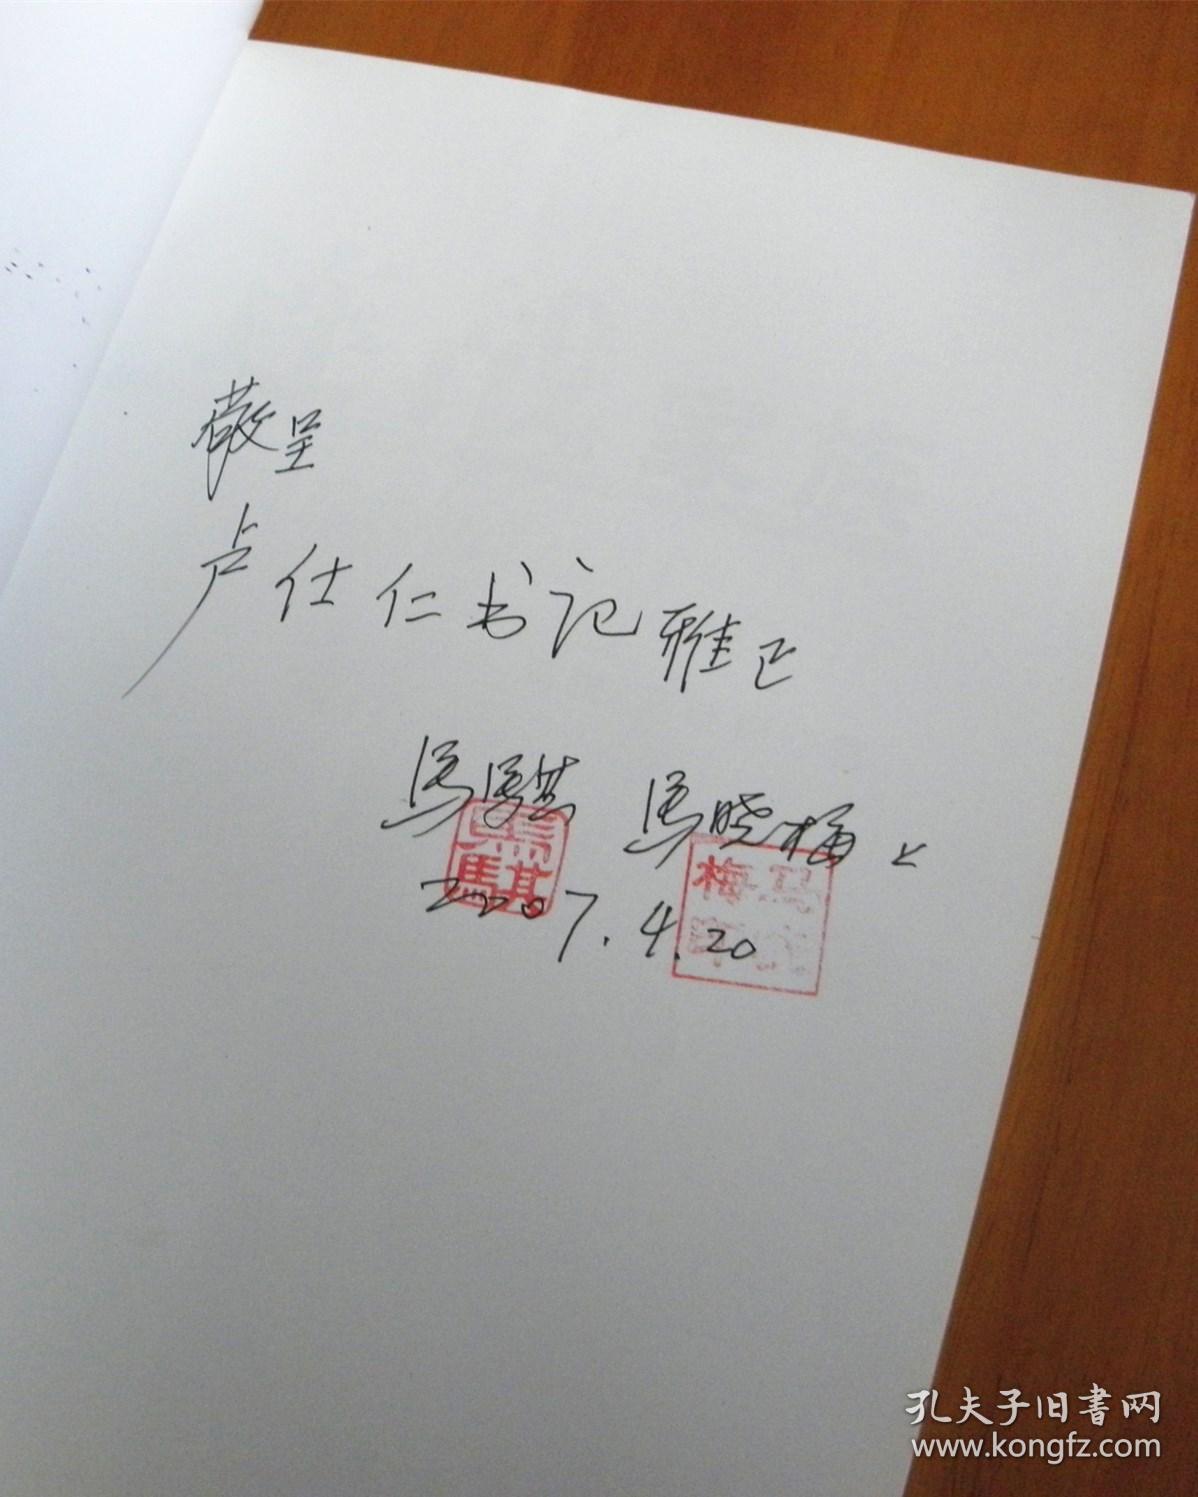 敬呈
卢仕仁书记雅正
马骐 马晓梅 上
2007.4.20
馬騏
马晓梅印
孔夫子旧書网
www.kongfz.com